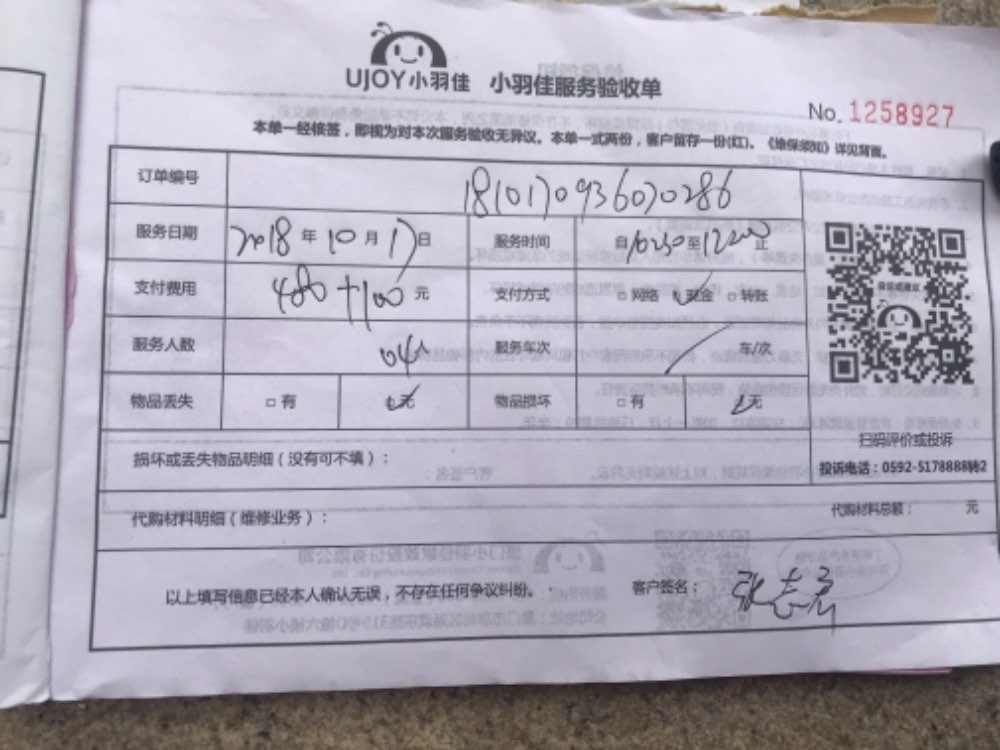 UJOY小羽佳 小羽佳服务验收单
No. 1258927
本单一经核签，即视为对本次服务验收无异议。本单一式两份，客户留存一份(红)。《维保须知》详见背面。
订单编号 1810170936070286
服务日期 2018 年 10 月 17 日 服务时间 自 10:30 至 12:00 止
支付费用 480+100 元 支付方式 □ 网络 ☑ 现金 □ 转账
服务人数 服务车次 / 车/次
物品丢失 □ 有 ☑ 无 物品损坏 □ 有 ☑ 无
扫码评价或投诉
投诉电话：0592-5178888转2
损坏或丢失物品明细（没有可不填）：
代购材料明细（维修业务）： 代购材料总额： 元
以上填写信息已经本人确认无误，不存在任何争议纠纷。 客户签名： 张志